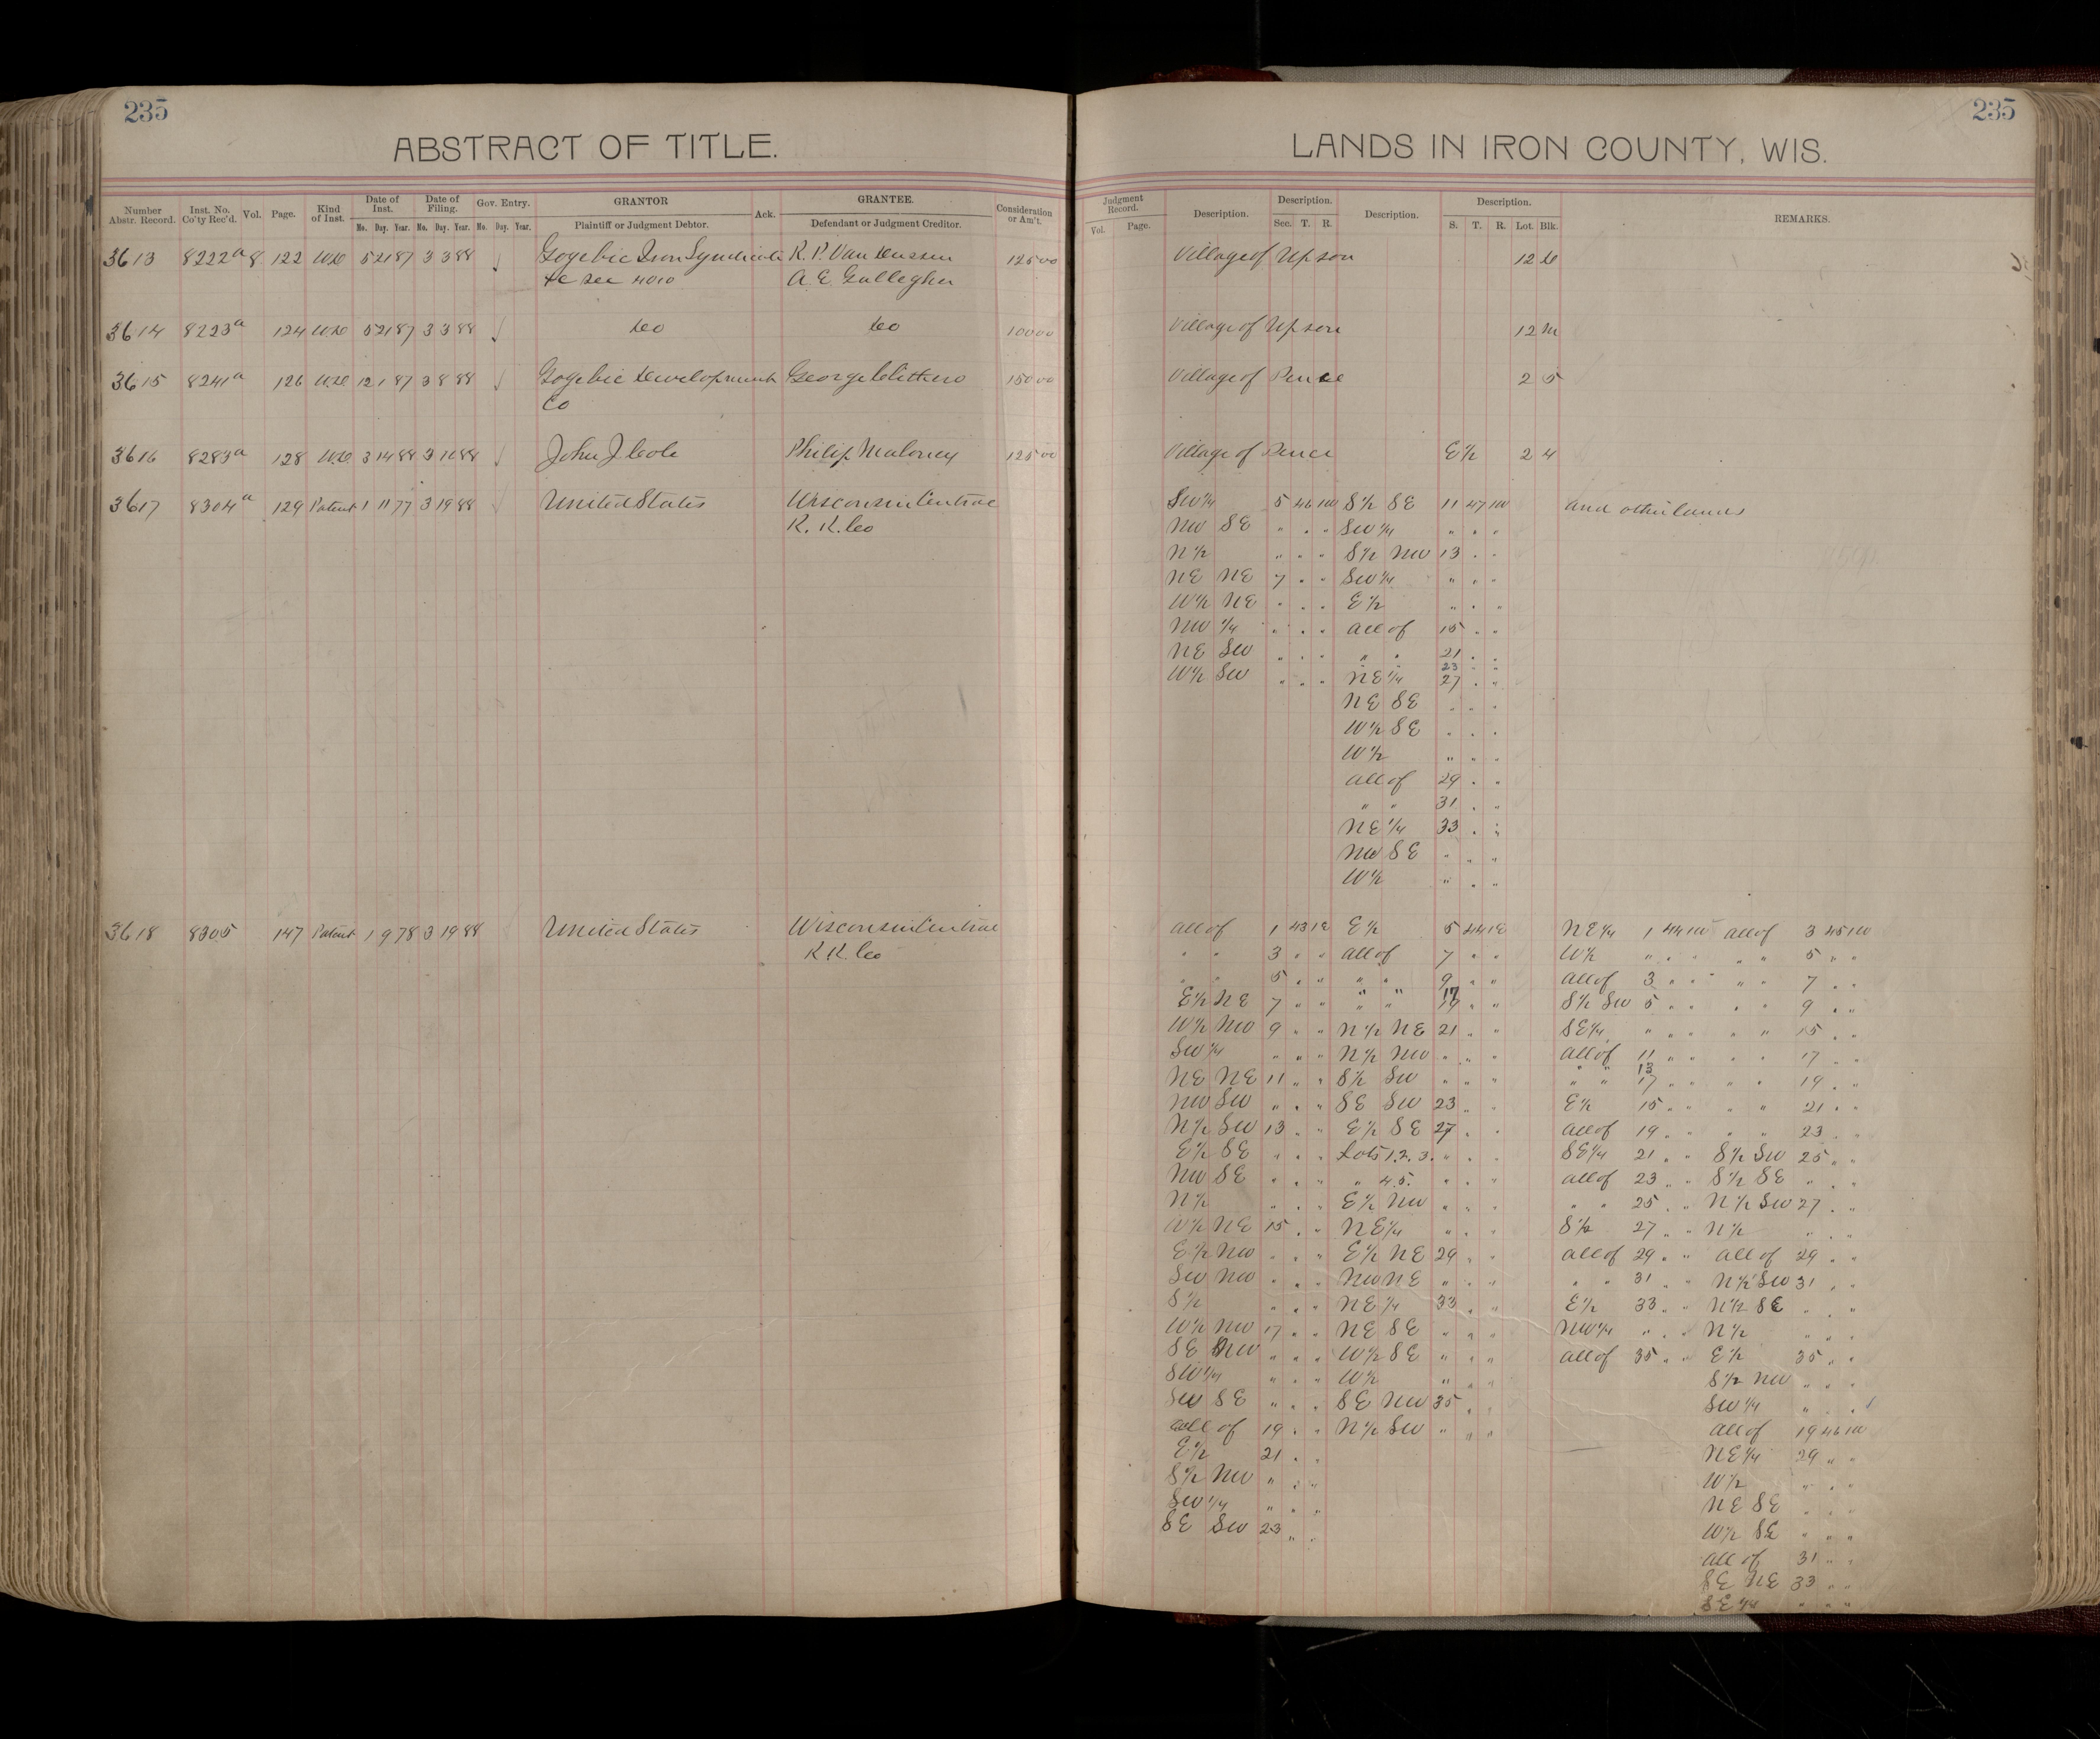 235
ABSTRACT OF TITLE.
Number Abstr. Record. Inst. No. Co'ty Rec'd. Vol. Page. Kind of Inst. Date of Inst. Date of Filing. Gov. Entry. GRANTOR Ack. GRANTEE. Consideration or Am't.
Mo. Day. Year. Mo. Day. Year. Mo. Day. Year. Plaintiff or Judgment Debtor. Defendant or Judgment Creditor.
3613 8222a 8 122 WD 5 21 87 3 3 88 √ Gogebic Iron Syndicate R. P. Van Deussen 125 00
A. E. Gallegher
3614 8223a 124 WD 5 21 87 3 3 88 √ do do 100 00
3615 8241a 126 WD 12 1 87 3 8 88 √ Gogebic Development George 150 00
Co
3616 8283a 128 WD 3 14 88 3 16 88 √ John J Cole Philip Maloney 125 00
3617 8304a 129 Patent 1 11 77 3 19 88 √ United States Wisconsin Central
R. R. Co
3618 8305 147 Patent 1 9 78 3 19 88 United States Wisconsin Central
R. R. Co
235
LANDS IN IRON COUNTY, WIS.
Judgment Record. Description. Description. Description. Description. REMARKS.
Vol. Page. Sec. T. R. S. T. R. Lot. Blk.
Village of Upson 12
Village of Upson 12 M
Village of Pence 2 5
Village of Pence E½ 2 4
SW¼ 5 46 1W S½ SE 11 47 1W and other lands
NW SE " " " SW¼ " " "
N½ " " " S½ NW 13 " "
NE NE 7 " " SW¼ " " "
W½ NE " " " E½ " " "
NW¼ " " " all of 15 " "
NE SW " " " " " 21 " "
23 " "
W½ SW " " " NE¼ 27 " "
NE SE " " "
W½ SE " " "
W½ " " "
all of 29 " "
" " 31 " "
NE¼ 33 " "
NW SE " " "
W½ " " "
all of 1 43 1E E½ 5 44 1E NE¼ 1 44 1W all of 3 45 1W
" " 3 " " all of 7 " " W½ " " " " " 5 " "
" " 5 " " " " 9 " " all of 3 " " " " 7 " "
" " 17
E½ NE 7 " " " " 19 " " S½ SW 5 " " " " 9 " "
W½ NW 9 " " N½ NE 21 " " SE¼ " " " " " 15 " "
SW¼ " " " N½ NW " " " all of 11 " " " " 17 " "
13
NE NE 11 " " S½ SW " " " " " 17 " " " " 19 " "
NW SW " " " SE SW 23 " " E½ 15 " " " " 21 " "
N½ SW 13 " " E½ SE 27 " " all of 19 " " " " 23 " "
E½ SE " " " Lots 1. 2. 3. " " " SE¼ 21 " " S½ SW 25 " "
NW SE " " " " 4. 5. " " " all of 23 " " S½ SE " " "
N½ " " " E½ NW " " " " " 25 " " N½ SW 27 " "
W½ NE 15 " " NE¼ " " " S½ 27 " " N½ " " "
E½ NW " " " E½ NE 29 " " all of 29 " " all of 29 " "
SW NW " " " NW NE " " " " " 31 " " N½ SW 31 " "
S½ " " " NE¼ 33 " " E½ 33 " " N½ SE " " "
W½ NW 17 " " NE SE " " " NW¼ " " " N½ " " "
SE NW " " " W½ SE " " " all of 35 " " E½ 35 " "
SW¼ " " " W½ " " " S½ NW " " "
SW SE " " " SE NW 35 " " SW¼ " " "
all of 19 " " N½ SW " " " all of 19 46 1W
E½ 21 " " NE¼ 29 " "
S½ NW " " " W½ " " "
SW¼ " " " NE SE " " "
SE SW 23 " " W½ SE " " "
all of 31 " "
SE NE 33 " "
SE¼ " " "